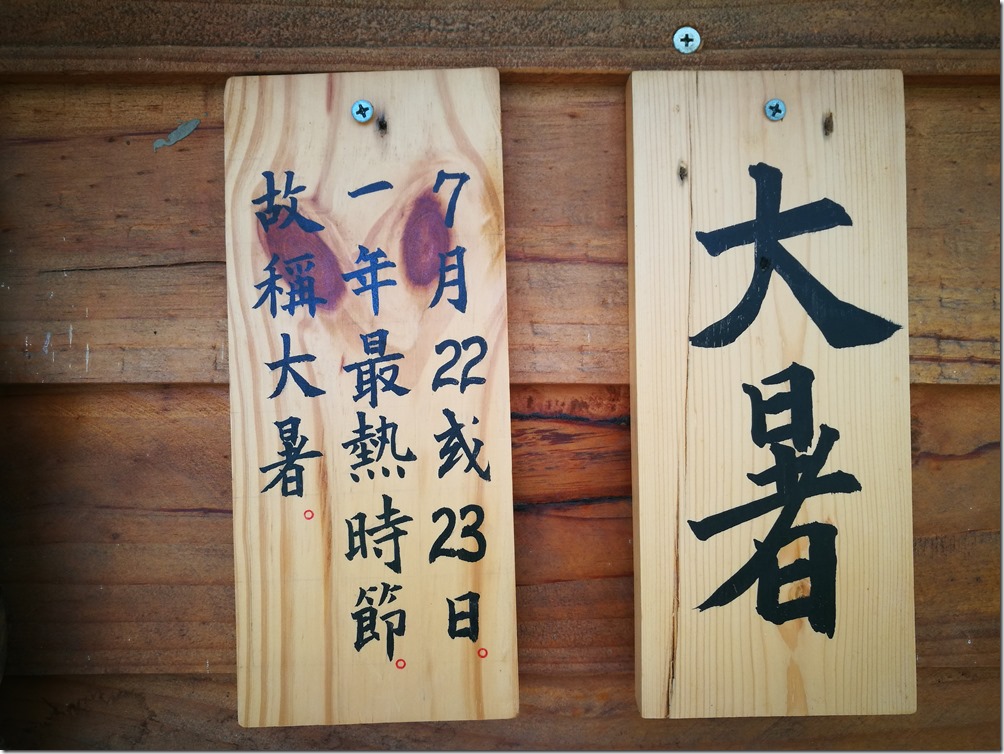 大暑
7月22或23日。
一年最熱時節。
故稱大暑。